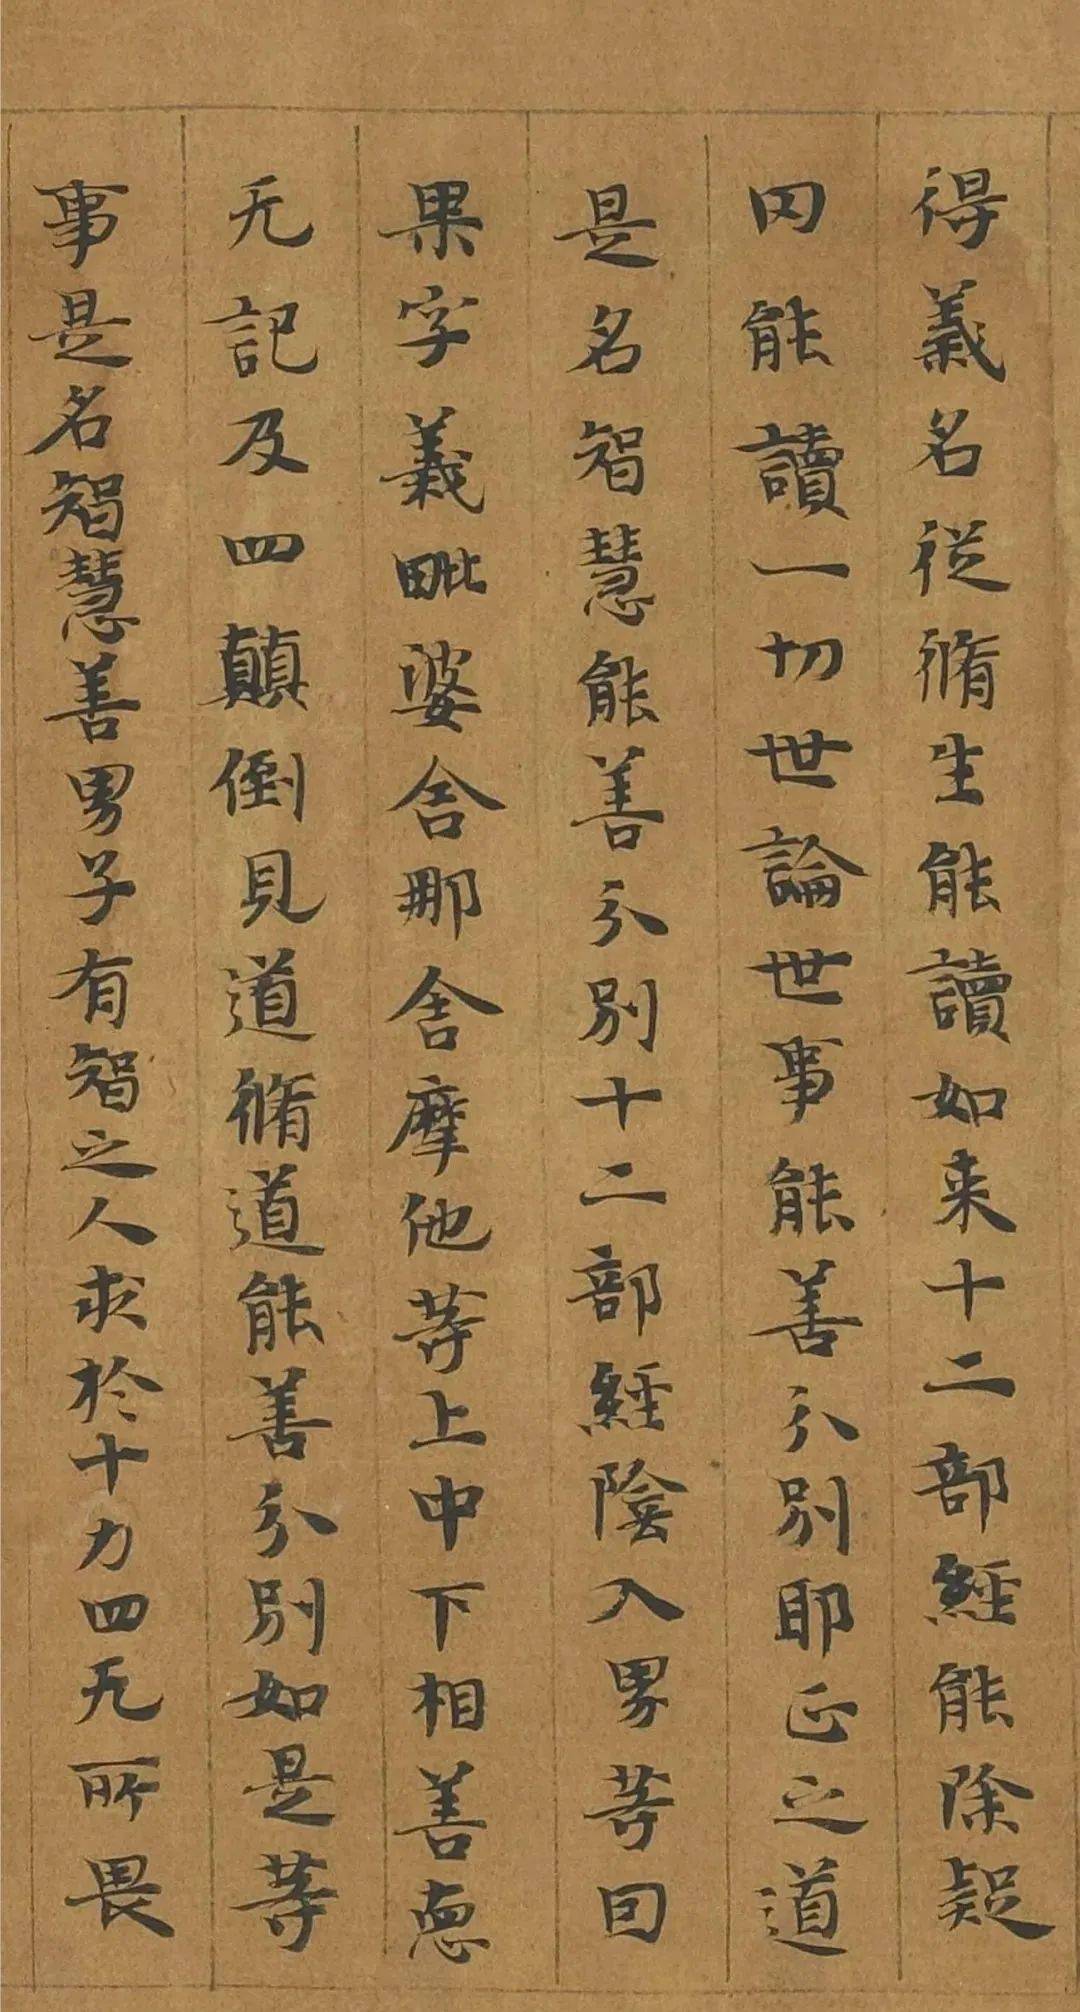 得義名從脩生能讀如来十二部經能除疑
网能讀一切世論世事能善分別耶正之道
是名智慧能善分別十二部經陰入界等囙
果字義毗婆舍那舍摩他等上中下相善惡
无記及四顛倒見道脩道能善分別如是等
事是名智慧善男子有智之人求於十力四无所畏